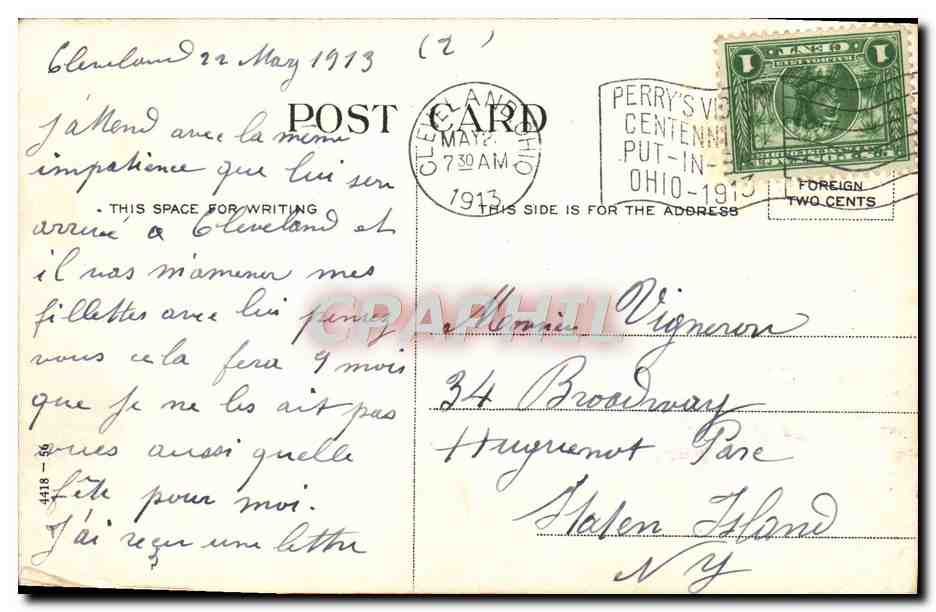 Cleveland 22 May 1913 (2)
POST CARD
CLEVELAND OHIO
MAY 2
7 30 AM
1913
PERRY'S VI
CENTENNI
PUT-IN-
OHIO-1913
1 CENT 1
FOREIGN
TWO CENTS
THIS SPACE FOR WRITING
THIS SIDE IS FOR THE ADDRESS
J'attend avec la même
impatience que lui sera
arrivé a Cleveland et
il vas m'amener mes
fillettes avec lui pensez
vous cela fera 9 mois
que je ne les ait pas
vues aussi quelle
fête pour moi.
J'ai reçu une lettre
4418-50
CPAPHIL
Monsieur Vigneron
34 Broadway
Huguenot Parc
Staten Island
NY